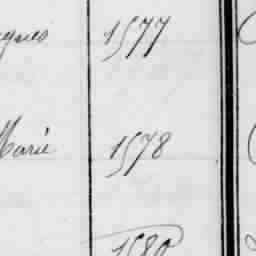 1577
Marie 1578
1580